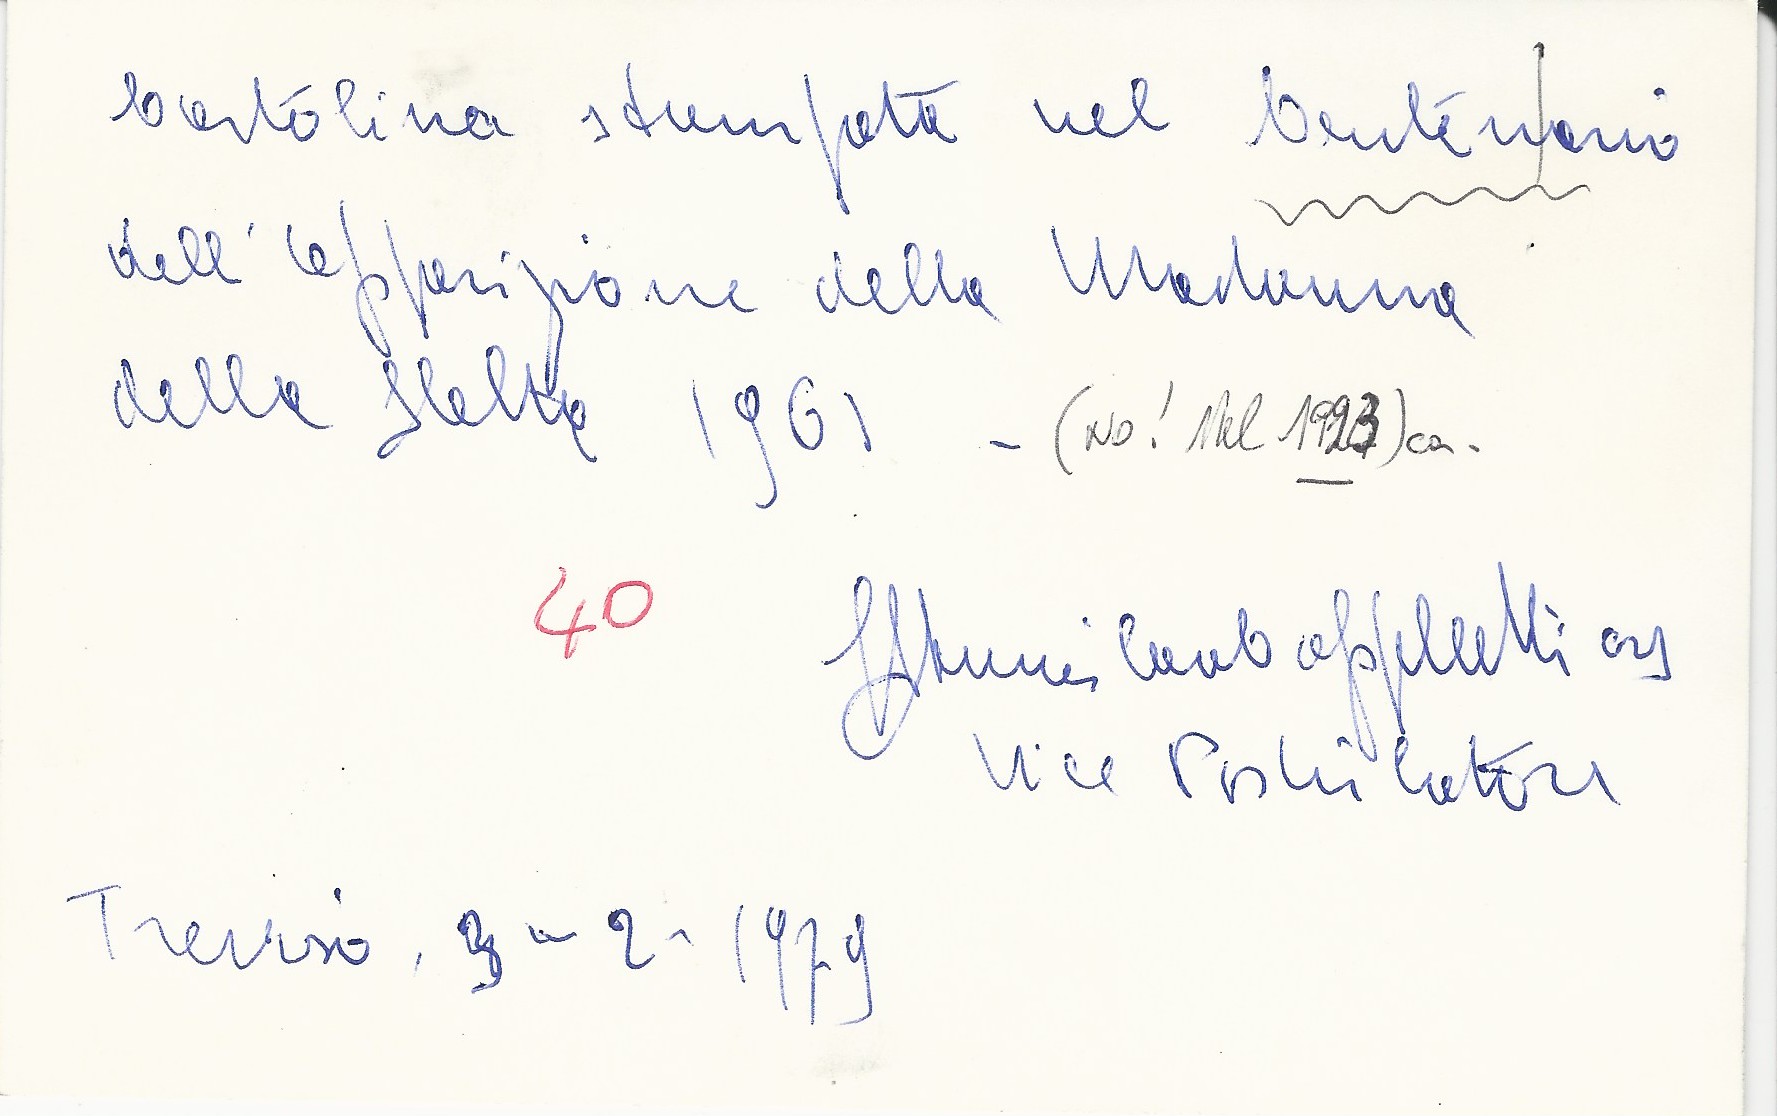 Cartolina stampata nel Centenario
dell'Apparizione della Madonna
della Stella 1961 - (No! Nel 1923) ca.
40
Vice Postulatore
Treviso, 3-2-1979